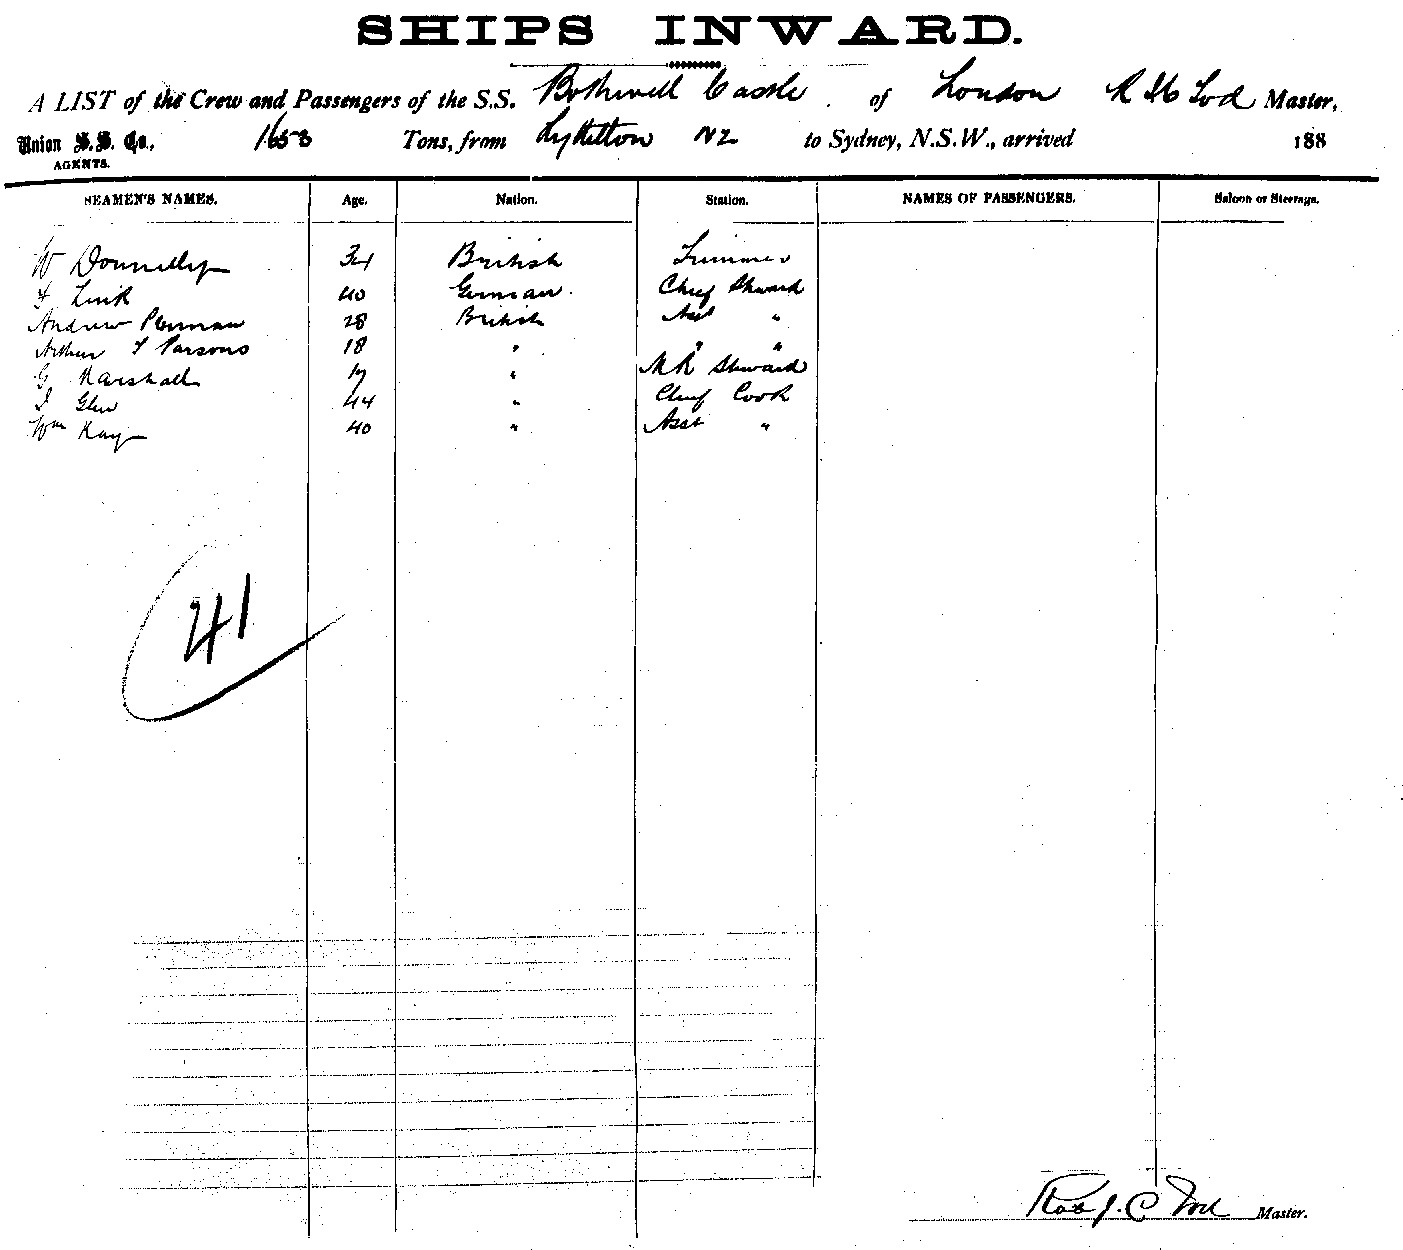 SHIPS INWARD.
A LIST of the Crew and Passengers of the S.S. Bothwell Castle of London R Mc Tod Master,
Union S.S. Co., 1653 Tons, from Lyttelton NZ to Sydney, N.S.W., arrived 188
AGENTS.
SEAMEN'S NAMES. Age. Nation. Station. NAMES OF PASSENGERS. Saloon or Steerage.
W Donnelly 34 British Trimmer
40 German Chief Steward
Andrew Penman 28 British Asst "
Arthur T Parsons 18 " " "
G Marshall 17 " M R Steward
J Glen 44 " Chief Cook
Wm Kay 40 " Asst "
41
Tod Master.